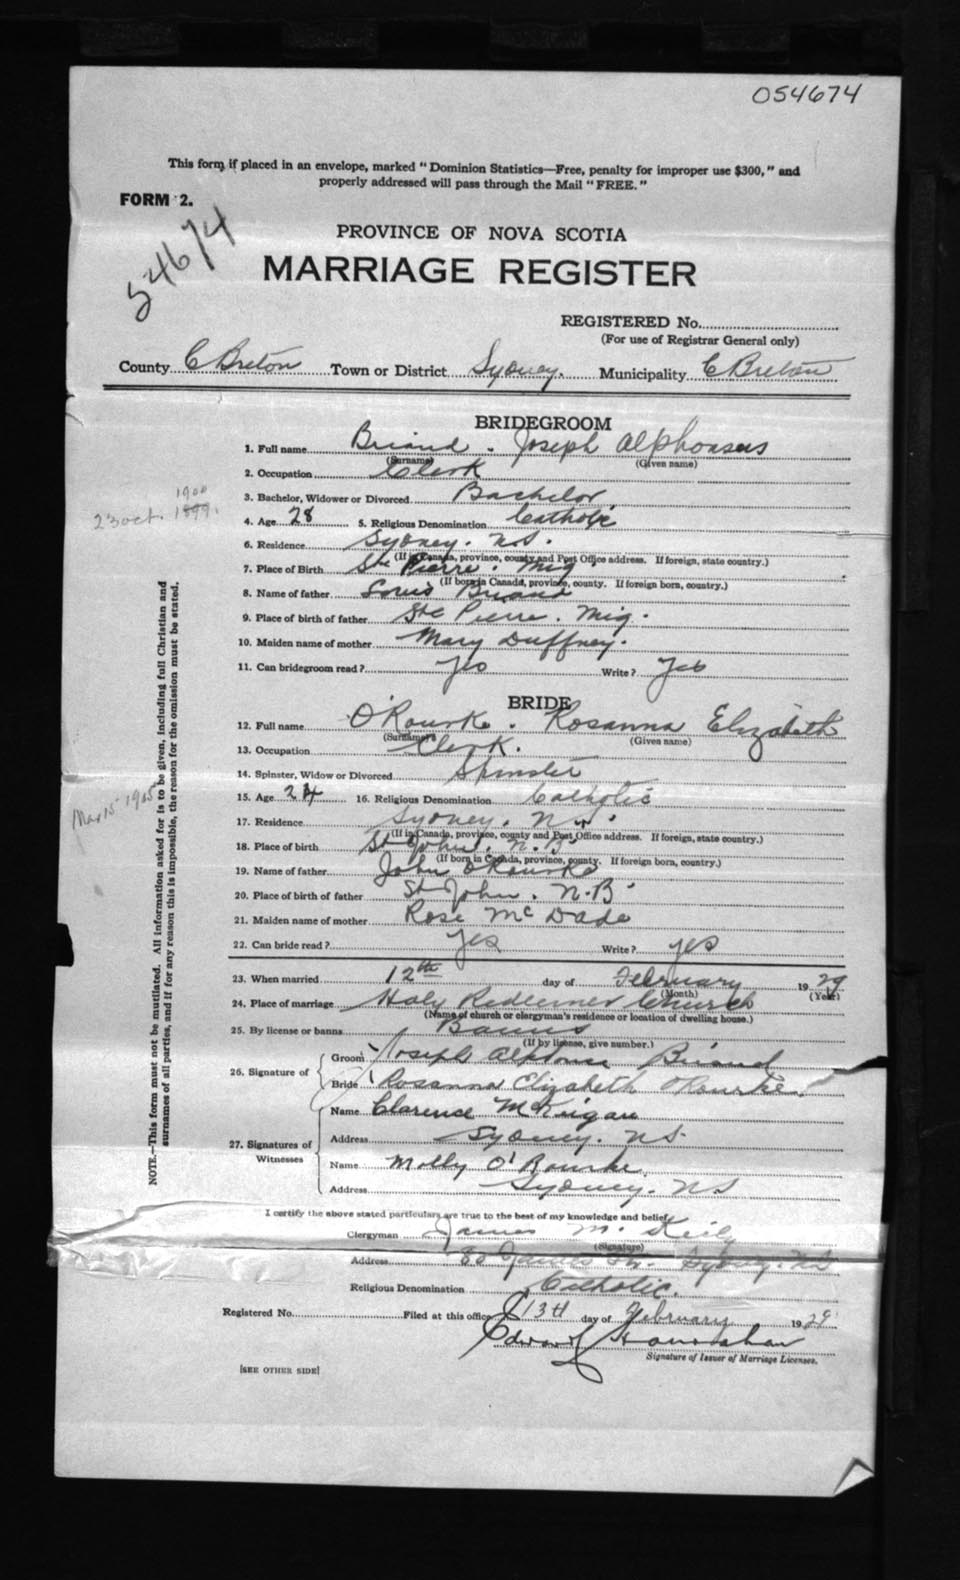 054674
This form if placed in an envelope, marked "Dominion Statistics—Free, penalty for improper use $300," and
properly addressed will pass through the Mail "FREE."
FORM 2.
54674
PROVINCE OF NOVA SCOTIA
MARRIAGE REGISTER
REGISTERED No.
(For use of Registrar General only)
County C Breton Town or District Sydney. Municipality C Breton
BRIDEGROOM
1. Full name Briand. Joseph Alphonsus
(Surname) (Given name)
2. Occupation Clerk
3. Bachelor, Widower or Divorced Bachelor
1900
23 oct. 1899.
4. Age 28 5. Religious Denomination Catholic
6. Residence Sydney. N.S.
(If in Canada, province, county and Post Office address. If foreign, state country.)
7. Place of Birth Ste Pierre. Miq
(If born in Canada, province, county. If foreign born, country.)
8. Name of father Louis Briand
9. Place of birth of father Ste Pierre. Miq.
10. Maiden name of mother Mary Duffney.
11. Can bridegroom read? yes Write? yes
BRIDE
12. Full name O'Rourke. Rosanna Elizabeth
(Surname) (Given name)
13. Occupation Clerk.
14. Spinster, Widow or Divorced Spinster
Mar 15 1905
15. Age 24 16. Religious Denomination Catholic
17. Residence Sydney. N.S.
(If in Canada, province, county and Post Office address. If foreign, state country.)
18. Place of birth St John. N.B
(If born in Canada, province, county. If foreign born, country.)
19. Name of father John O'Rourke
20. Place of birth of father St John. N.B
21. Maiden name of mother Rose McDade
22. Can bride read? yes Write? yes
23. When married 12th day of February 1929
(Month) (Year)
24. Place of marriage Holy Redeemer Church
(Name of church or clergyman's residence or location of dwelling house.)
25. By license or banns Banns
(If by license, give number.)
26. Signature of Groom Joseph Alphonse Briand
Bride Rosanna Elizabeth O'Rourke.
27. Signatures of Witnesses
Name Clarence McKiigan
Address Sydney. N.S.
Name Molly O'Rourke
Address Sydney. N.S
I certify the above stated particulars are true to the best of my knowledge and belief.
Clergyman James M. Keily
(Signature)
Address 80 James St. Sydney. N.S
Religious Denomination Catholic.
Registered No. Filed at this office 13th day of February 1929
Edward Hanrahan
Signature of Issuer of Marriage Licenses.
[SEE OTHER SIDE]
NOTE.—This form must not be mutilated. All information asked for is to be given, including full Christian and
surnames of all parties, and if for any reason this is impossible, the reason for the omission must be stated.